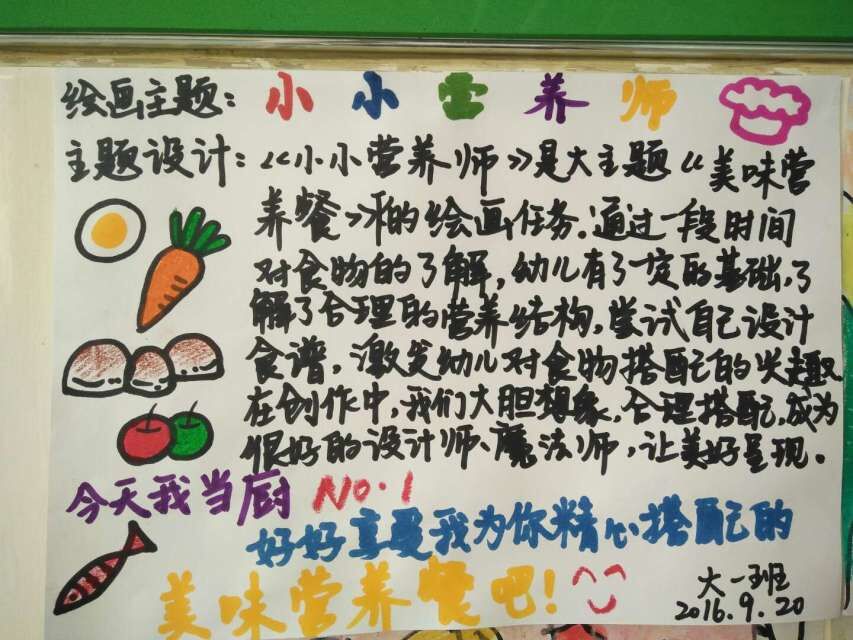 绘画主题：小小营养师
主题设计：《小小营养师》是大主题《美味营
养餐》的绘画任务.通过一段时间
对食物的了解,幼儿有了一定的基础,了
解了合理的营养结构,尝试自己设计
食谱.激发幼儿对食物搭配的兴趣
在创作中,我们大胆想象,合理搭配,成为
很好的设计师、魔法师,让美好呈现.
今天我当厨 NO.1
好好享受我为你精心搭配的
美味营养餐吧!
大一班
2016.9.20